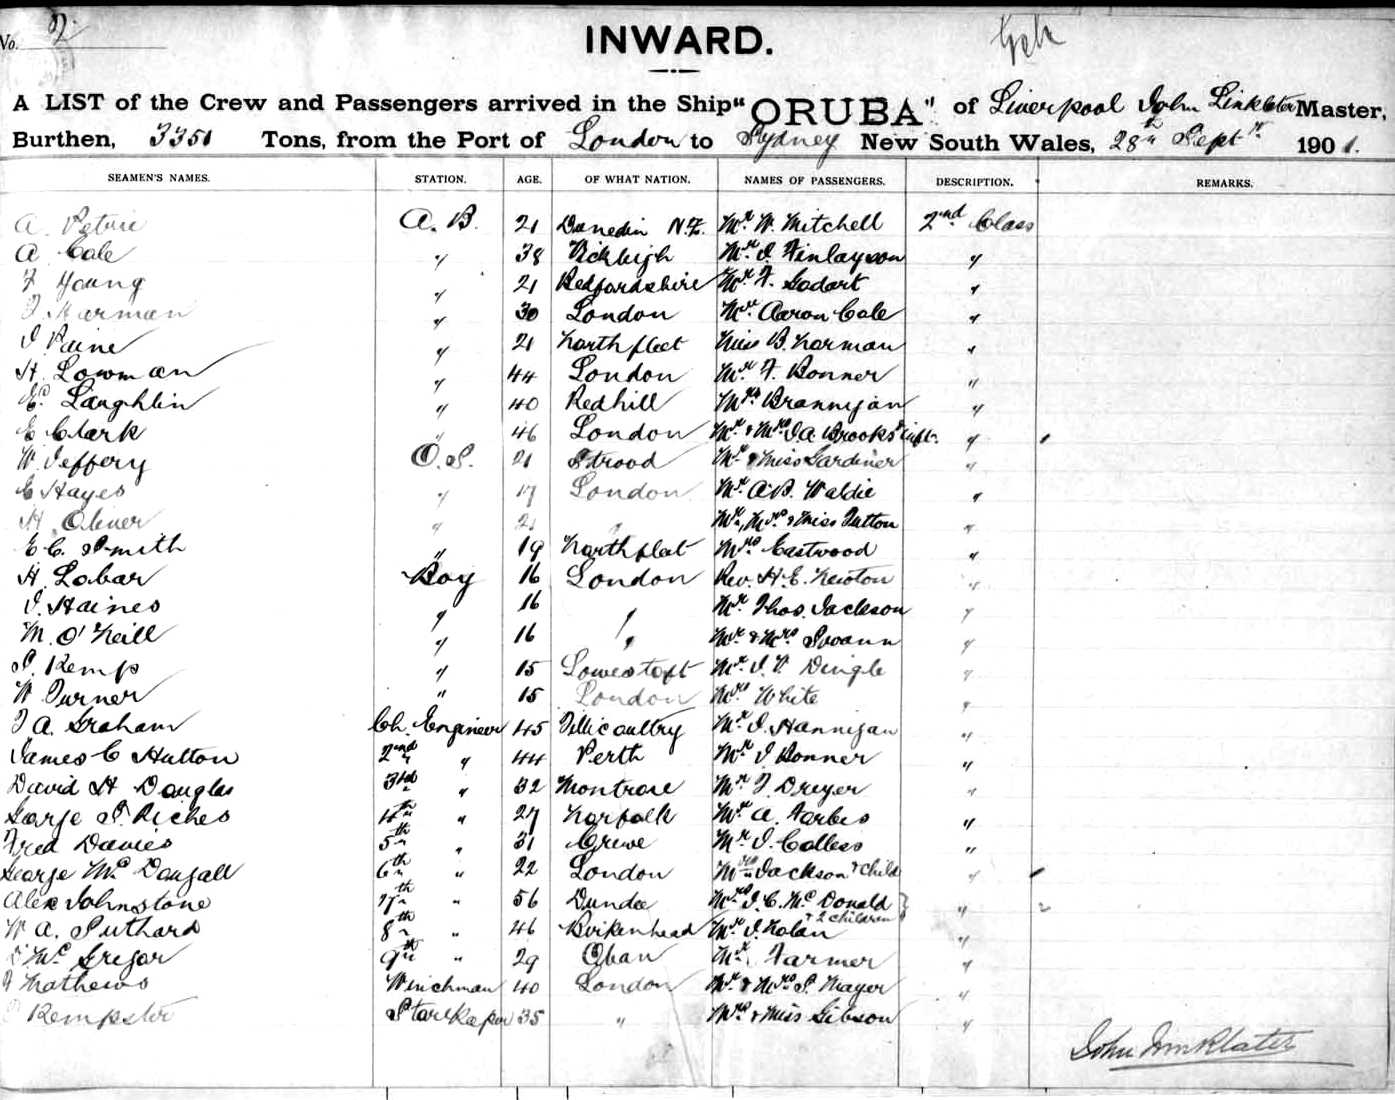 No. 2
INWARD.
A LIST of the Crew and Passengers arrived in the Ship "ORUBA" of Liverpool John Linklater Master,
Burthen, 3351 Tons, from the Port of London to Sydney New South Wales, 28th Sept 1901.
SEAMEN'S NAMES. STATION. AGE. OF WHAT NATION. NAMES OF PASSENGERS. DESCRIPTION. REMARKS.
A. Petrie A. B. 21 Dunedin N.Z. Mr W. Mitchell 2nd Class
A Cale " 38 Mr J. Finlayson "
F Young " 21 Bedfordshire Mr F. Godart "
J Harman " 30 London Mr Aaron Cale "
J. Paine " 21 Northfleet Miss B. Norman "
H. Lowman " 44 London Mr F. Bonner "
Mc Laughlin " 40 Redhill Mrs Brannigan "
E Clark " 46 London Mr & Mrs J.A. Brooks & inft. "
W. Jeffery O. S. 21 Strood Mr & Miss Gardiner "
E Hayes " 17 London Mr A.B. Waldie "
H. Oliver " 21 " Mr, Mrs & Miss Tutton "
E. C. Smith " 19 Northfleet Mrs Eastwood "
H. Lobar Boy 16 London Rev. H. E. Newton "
J. Haines " 16 " Mr Thos. Jackson "
M. O'Neill " 16 " Mr & Mrs Swann "
S. Kemp " 15 Lowestoft Mr J. V. Dingle "
W Turner " 15 London Mrs White "
J A. Graham Ch. Engineer 45 Tillicoultry Mr J. Hannigan "
James C Hutton 2nd " 44 Perth Mr J Bonner "
David H Douglas 3rd " 32 Montrose Mr J. Dreyer "
George S. Riches 4th " 27 Norfolk Mr A. Forbes "
Fred Davies 5th " 31 Crewe Mr J. Colless "
George McDougall 6th " 22 London Mrs Jackson & Child "
Alex Johnstone 7th " 56 Dundee Mrs J. C. McDonald & 2 children "
W A. Suthard 8th " 46 Birkenhead Mr J. Nolan "
McGregor 9th " 29 Oban Mr Farmer "
Mathews Winchman 40 London Mr & Mrs S. Mayer "
Kempster Storekeeper 35 " Mrs & Miss Gibson "
John Linklater